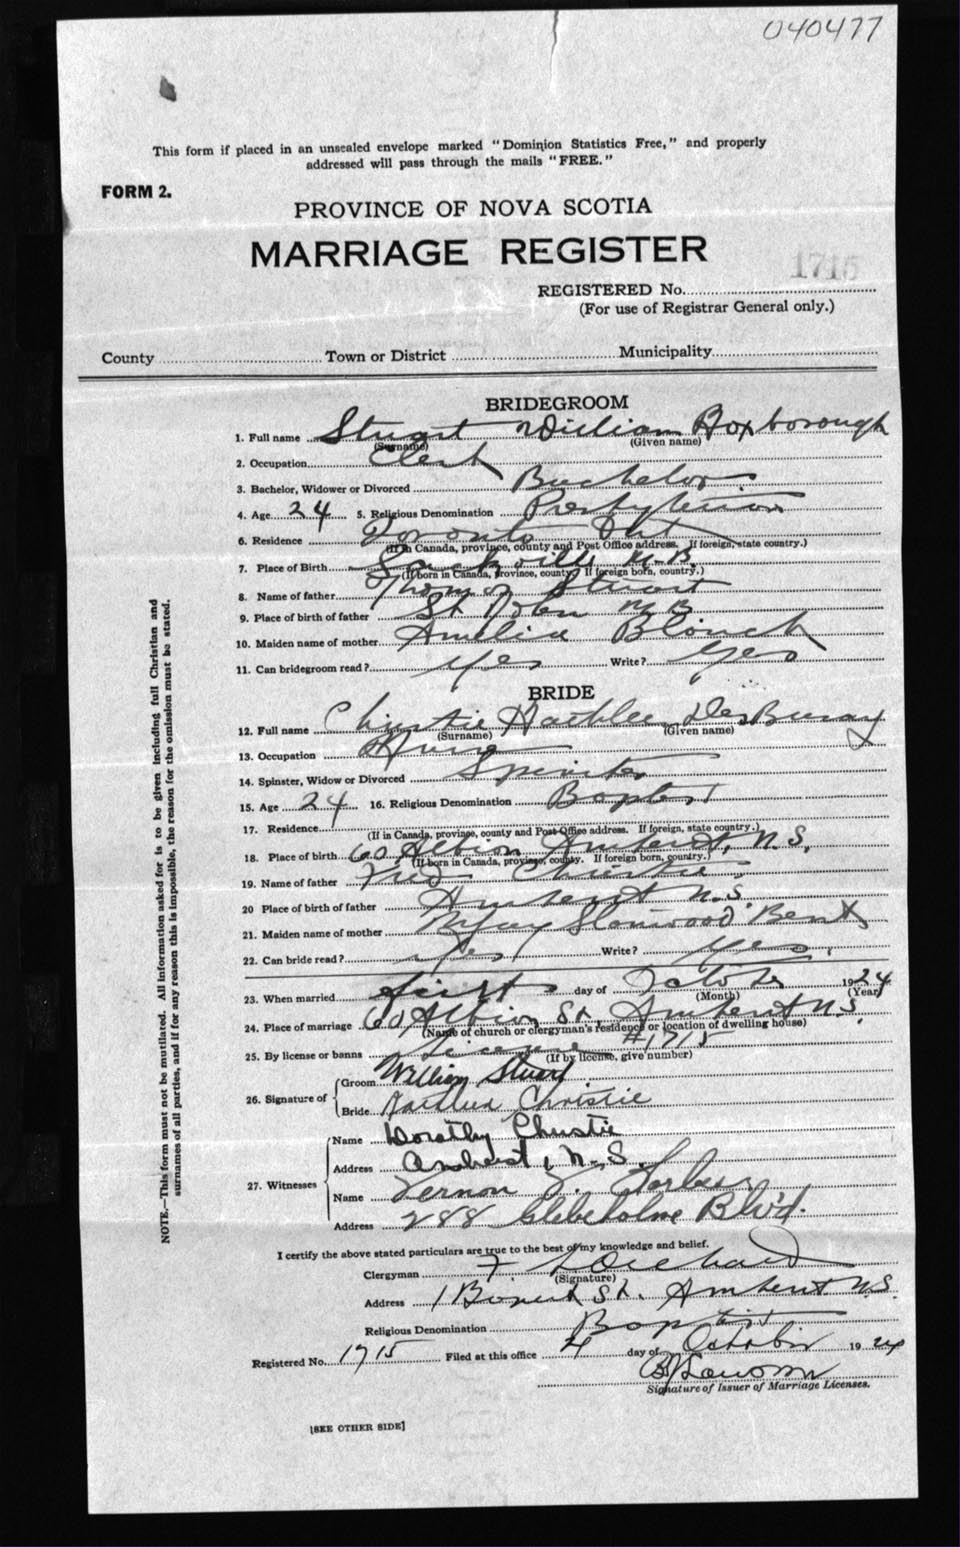 040477
This form if placed in an unsealed envelope marked "Dominion Statistics Free," and properly
addressed will pass through the mails "FREE."
FORM 2.
PROVINCE OF NOVA SCOTIA
MARRIAGE REGISTER
1715
REGISTERED No.
(For use of Registrar General only.)
County Town or District Municipality
BRIDEGROOM
1. Full name Stuart William Roxborough
(Surname) (Given name)
2. Occupation Clerk
3. Bachelor, Widower or Divorced Bachelor
4. Age 24 5. Religious Denomination Presbyterian
6. Residence Toronto Ont
(If in Canada, province, county and Post Office address. If foreign, state country.)
7. Place of Birth Sackville N.B.
(If born in Canada, province, county. If foreign born, country.)
8. Name of father Thomas Stuart
9. Place of birth of father St John N B
10. Maiden name of mother Amelia
11. Can bridegroom read? Yes Write? Yes
BRIDE
12. Full name Christie Kathleen DesBarres
(Surname) (Given name)
13. Occupation Nurse
14. Spinster, Widow or Divorced Spinster
15. Age 24 16. Religious Denomination Baptist
17. Residence
(If in Canada, province, county and Post Office address. If foreign, state country.)
18. Place of birth 60 Albion Amherst, N.S.
(If born in Canada, province, county. If foreign born, country.)
19. Name of father Fred Christie
20 Place of birth of father Amherst N.S.
21. Maiden name of mother Bent
22. Can bride read? Yes Write? Yes.
23. When married first day of October 1924
(Month) (Year)
24. Place of marriage 60 Albion St. Amherst N.S.
(Name of church or clergyman's residence or location of dwelling house)
25. By license or banns License #1715
(If by license, give number)
26. Signature of
Groom William Stuart
Bride Kathleen Christie
27. Witnesses
Name Dorothy Christie
Address Amherst, N.S.
Name Vernon J. Forbes
Address 288 Glebeholme Blv'd.
I certify the above stated particulars are true to the best of my knowledge and belief.
Clergyman F
(Signature)
Address 1 St. Amherst N.S.
Religious Denomination Baptist
Registered No. 1715 Filed at this office 4 day of October 1924
Signature of Issuer of Marriage Licenses.
[SEE OTHER SIDE]
NOTE.—This form must not be mutilated. All information asked for is to be given including full Christian and
surnames of all parties, and if for any reason this is impossible, the reason for the omission must be stated.